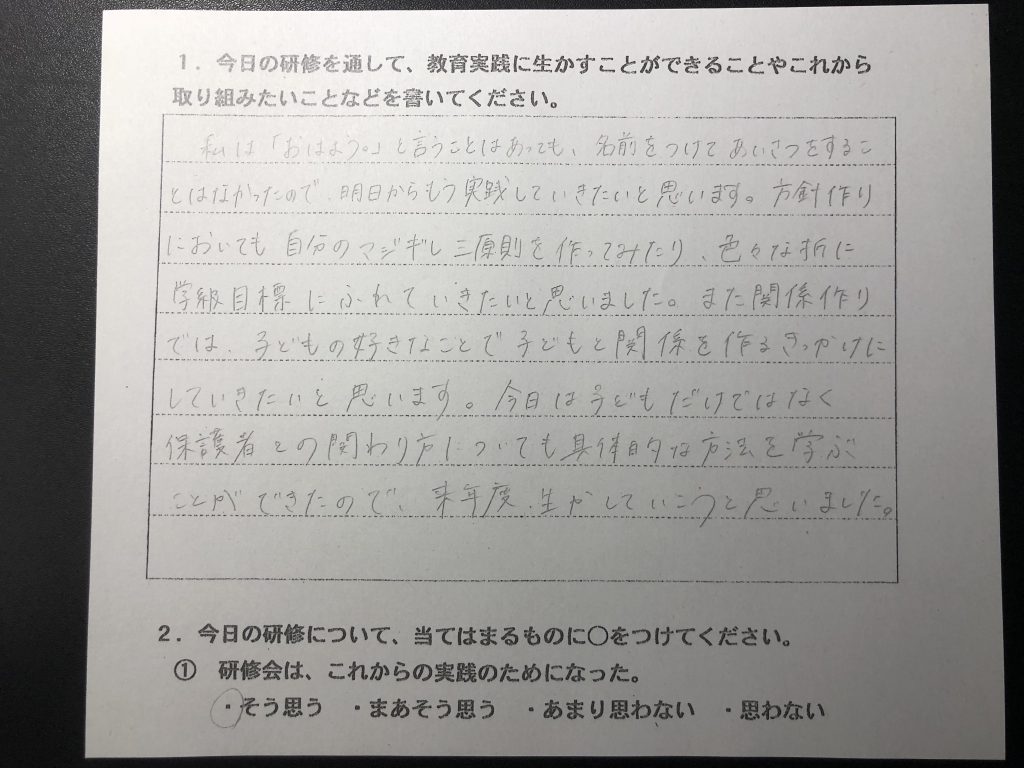 1．今日の研修を通して、教育実践に生かすことができることやこれから
取り組みたいことなどを書いてください。
私は「おはよう。」と言うことはあっても、名前をつけてあいさつをするこ
とはなかったので、明日からもう実践していきたいと思います。方針作り
においても自分のマジギレ三原則を作ってみたり、色々な折に
学級目標にふれていきたいと思いました。また関係作り
では、子どもの好きなことで子どもと関係を作るきっかけに
していきたいと思います。今日は子どもだけではなく
保護者との関わり方についても具体的な方法を学ぶ
ことができたので、来年度、生かしていこうと思いました。
2．今日の研修について、当てはまるものに○をつけてください。
① 研修会は、これからの実践のためになった。
・そう思う ・まあそう思う ・あまり思わない ・思わない